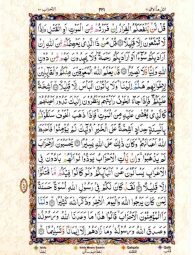 قُلْ لَّنْ يَّنْفَعَكُمُ الْفِرَارُ اِنْ فَرَرْتُمْ مِّنَ الْمَوْتِ اَوِ الْقَتْلِ وَاِذًا
لَّا تُمَتَّعُوْنَ اِلَّا قَلِيْلًا قُلْ مَنْ ذَا الَّذِيْ يَعْصِمُكُمْ مِّنَ اللّٰهِ اِنْ
اَرَادَ بِكُمْ سُوْٓءًا اَوْ اَرَادَ بِكُمْ رَحْمَةً وَلَا يَجِدُوْنَ لَهُمْ مِّنْ دُوْنِ
اللّٰهِ وَلِيًّا وَّلَا نَصِيْرًا قَدْ يَعْلَمُ اللّٰهُ الْمُعَوِّقِيْنَ مِنْكُمْ وَالْقَآئِلِيْنَ
لِاِخْوَانِهِمْ هَلُمَّ اِلَيْنَا وَلَا يَاْتُوْنَ الْبَاْسَ اِلَّا قَلِيْلًا اَشِحَّةً
عَلَيْكُمْ فَاِذَا جَآءَ الْخَوْفُ رَاَيْتَهُمْ يَنْظُرُوْنَ اِلَيْكَ تَدُوْرُ
اَعْيُنُهُمْ كَالَّذِيْ يُغْشٰى عَلَيْهِ مِنَ الْمَوْتِ فَاِذَا ذَهَبَ الْخَوْفُ سَلَقُوْكُمْ
بِاَلْسِنَةٍ حِدَادٍ اَشِحَّةً عَلَى الْخَيْرِ اُولٰٓئِكَ لَمْ يُؤْمِنُوْا فَاَحْبَطَ
اللّٰهُ اَعْمَالَهُمْ وَكَانَ ذٰلِكَ عَلَى اللّٰهِ يَسِيْرًا يَحْسَبُوْنَ الْاَحْزَابَ
لَمْ يَذْهَبُوْا وَاِنْ يَّاْتِ الْاَحْزَابُ يَوَدُّوْا لَوْ اَنَّهُمْ بَادُوْنَ
فِي الْاَعْرَابِ يَسْاَلُوْنَ عَنْ اَنْۢبَآئِكُمْ وَلَوْ كَانُوْا فِيْكُمْ مَّا قٰتَلُوْٓا
اِلَّا قَلِيْلًا لَقَدْ كَانَ لَكُمْ فِيْ رَسُوْلِ اللّٰهِ اُسْوَةٌ حَسَنَةٌ
لِّمَنْ كَانَ يَرْجُوا اللّٰهَ وَالْيَوْمَ الْاٰخِرَ وَذَكَرَ اللّٰهَ كَثِيْرًا وَلَمَّا
رَاَ الْمُؤْمِنُوْنَ الْاَحْزَابَ قَالُوْا هٰذَا مَا وَعَدَنَا اللّٰهُ وَرَسُوْلُهٗ
وَصَدَقَ اللّٰهُ وَرَسُوْلُهٗ وَمَا زَادَهُمْ اِلَّآ اِيْمَانًا وَّتَسْلِيْمًا